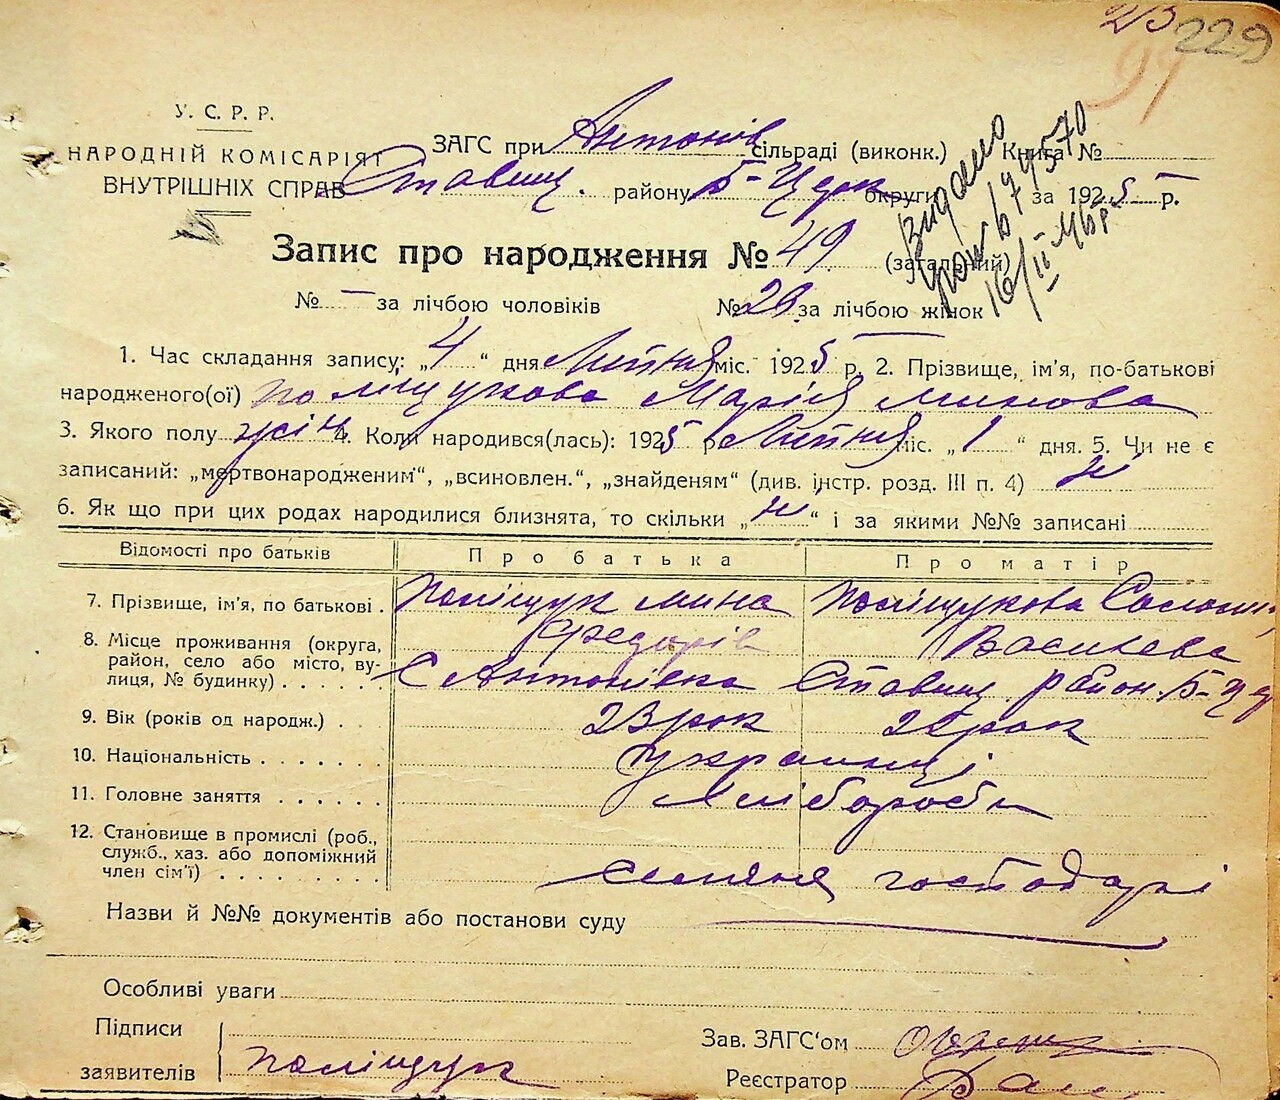 229
99
У. С. Р. Р.
НАРОДНІЙ КОМІСАРІЯТ
ВНУТРІШНІХ СПРАВ
ЗАГС при Антонів сільраді (виконк.) Книга №
Ставищ. району Б-Церк округи за 1925 р.
Видано
679570
16/II 46 р
Запис про народження № 49 (загальний)
№ — за лічбою чоловіків № 26 за лічбою жінок
1. Час складання запису: „4“ дня Липня міс. 1925 р. 2. Прізвище, ім'я, по-батькові
народженого(ої) Поліщукова Марія Минова
3. Якого полу жін 4. Коли народився(лась): 1925 р Липня міс. „1“ дня. 5. Чи не є
записаний: „мертвонародженим“, „всиновлен.“, „знайденям“ (див. інстр. розд. III п. 4) ні
6. Як що при цих родах народилися близнята, то скільки „ні“ і за якими №№ записані
Відомості про батьків Про батька Про матір
7. Прізвище, ім'я, по батькові . Поліщук Мина Поліщукова
Федорів Василева
8. Місце проживання (округа,
район, село або місто, ву-
лиця, № будинку) . . . . . С Антонівка Ставищ район. Б-Цер
9. Вік (років од народж.) . . 23 рок рок
10. Національність . . . . . . українці
11. Головне заняття . . . . . . Хлібороби
12. Становище в промислі (роб.,
служб., хаз. або допоміжний
член сім'ї) . . . . . . . . . селяне господарі
Назви й №№ документів або постанови суду
Особливі уваги
Підписи
заявителів Поліщук
Зав. ЗАГС'ом
Реєстратор